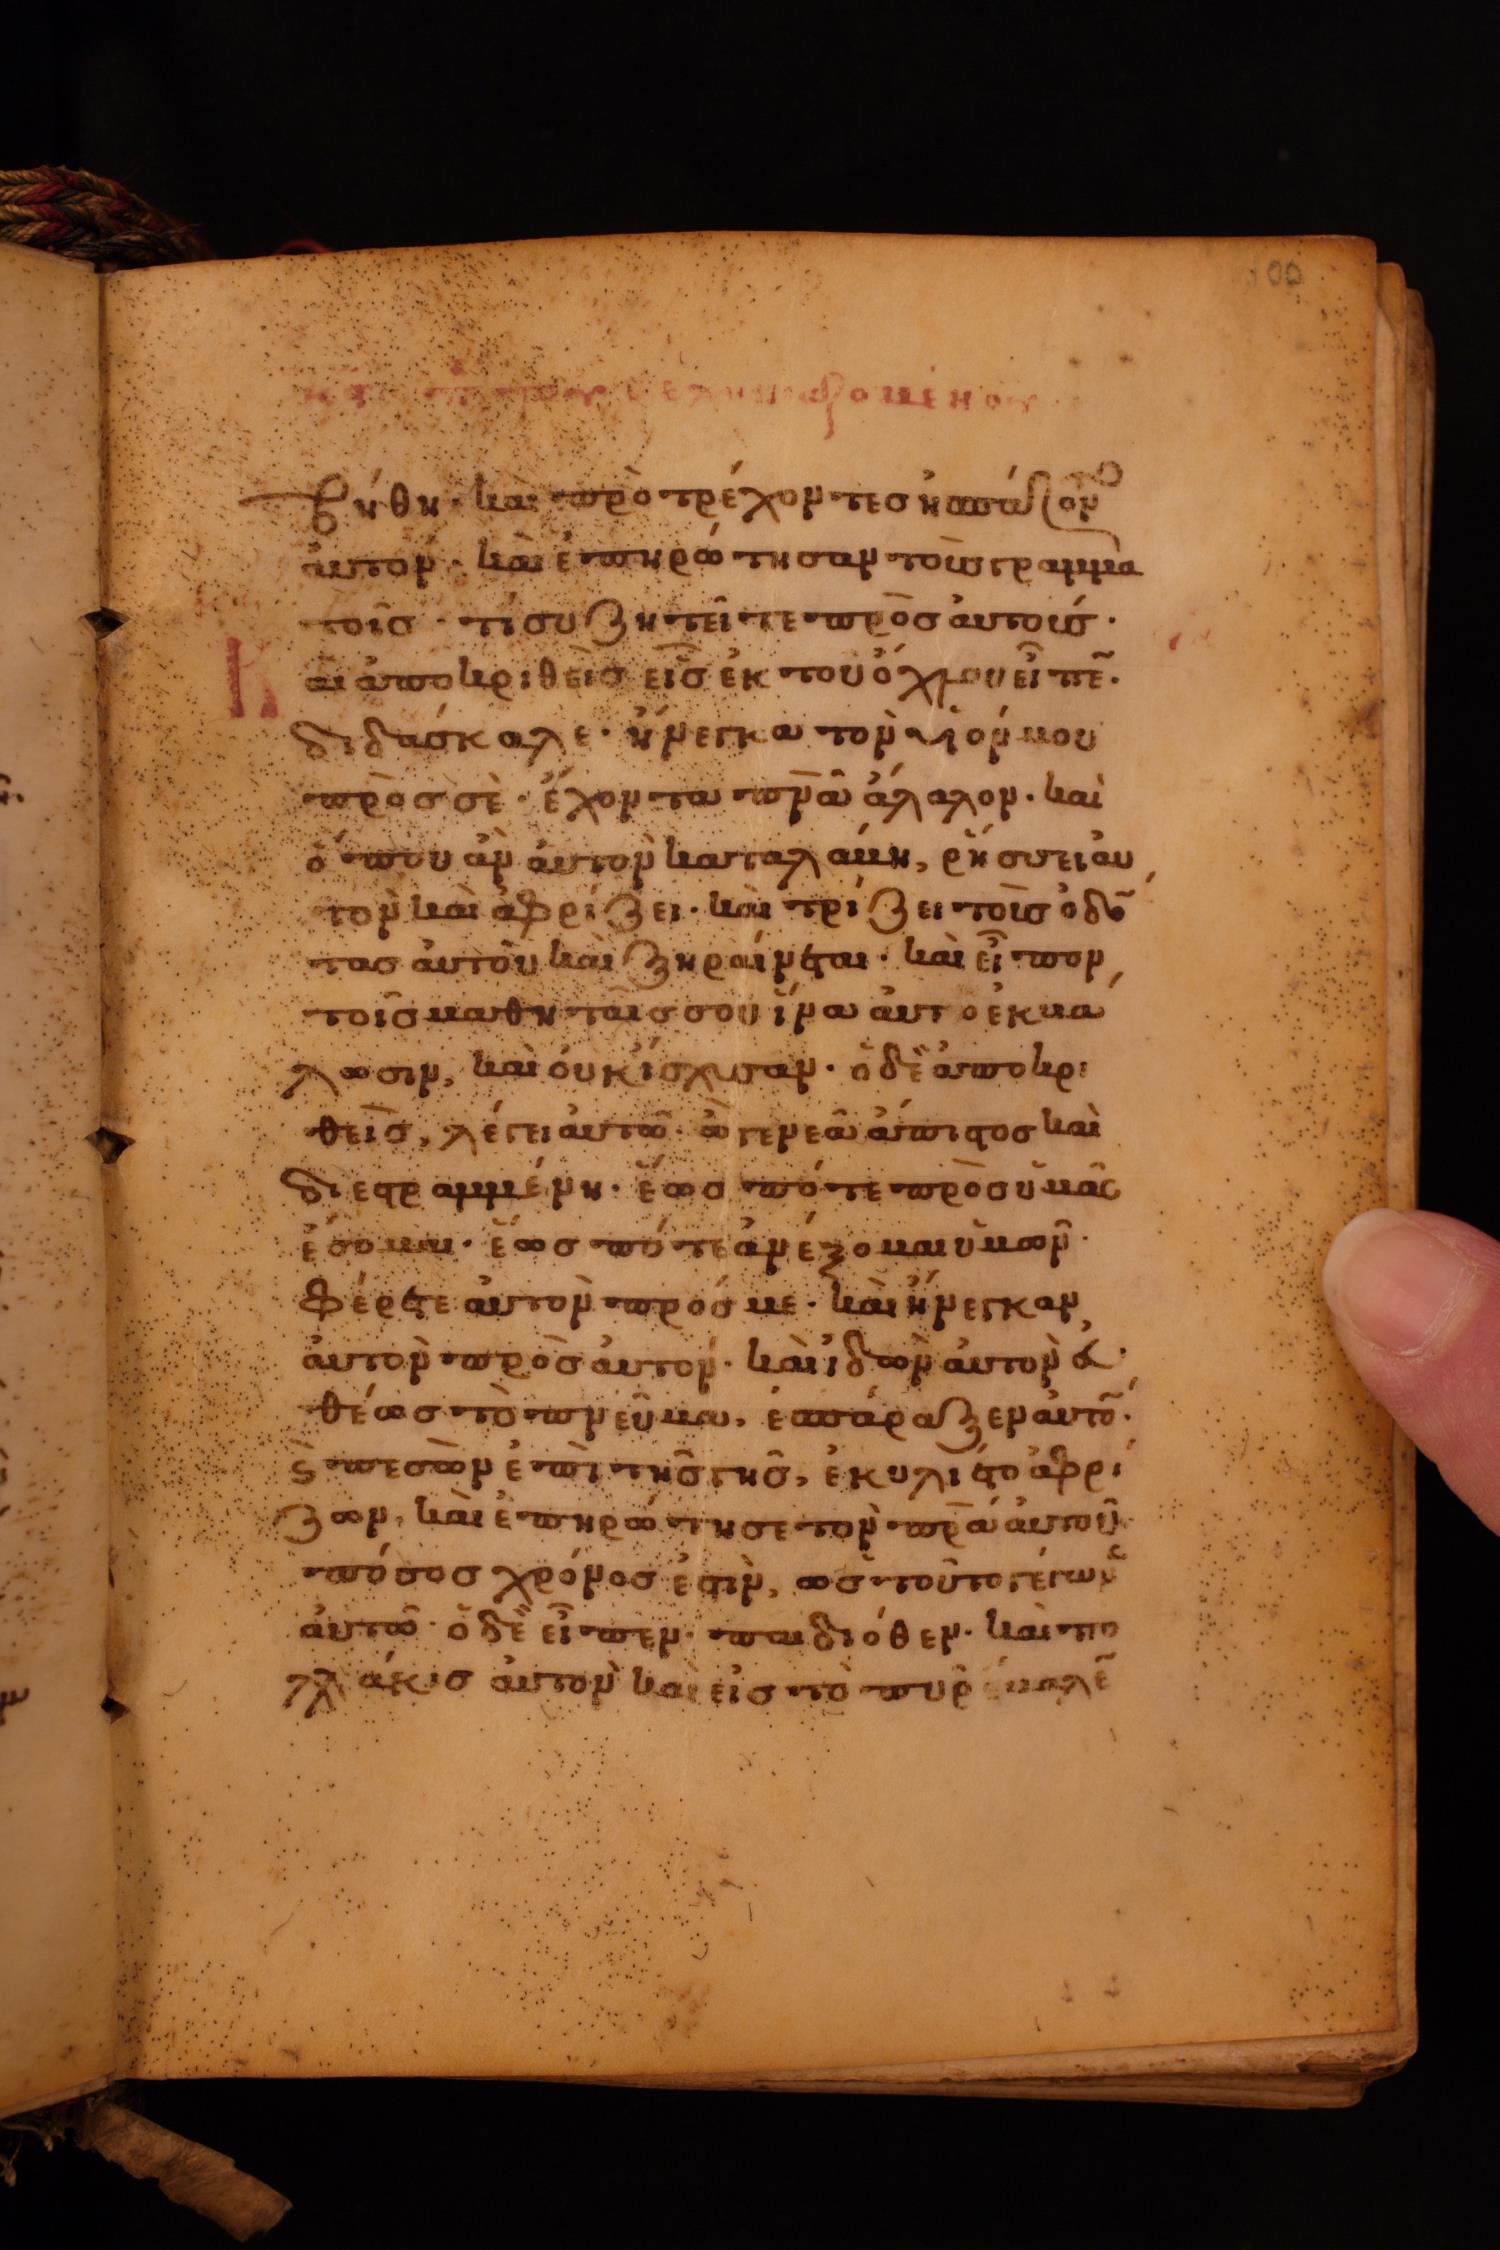 100
τοῦ σεληνιαζομένου
βήθη· καὶ προτρέχοντες ἠσπάζοντο
ἀυτόν· καὶ ἐπηρώτησαν τοὺς γραμμα
τοῖσ· τί συζητεῖτε πρὸσ ἀυτούσ·
Καὶ ἀποκριθεὶσ εἷσ ἐκ του ὄχλου εἶπε̃·
διδάσκαλε· ἤνεγκα τὸν υἱόν μου
πρὸσ σὲ· ἔχοντα πν̅α ἄλαλον· καὶ
ὅπου ἂν ἀυτὸν καταλάβη, ρήσσει ἀυ
τὸν καὶ ἀφρίζει· καὶ τρίζει τοὺσ ὀδό
τασ ἀυτοῦ καὶ ξηραίνεται· καὶ εἶπον
τοῖσ μαθηταῖσ σου ἵνα ἀυτὸ ἐκβά
λωσιν, καὶ ὀυκ ἴσχυσαν· ὁ δὲ ἀποκρι
θεὶσ, λέγει ἀυτῶ· ὦ γενεὰ ἄπιστοσ καὶ
διεστραμμένη· ἕωσ πότε πρὸσ ὑμᾶσ
ἔσομαι· ἕωσ πότε ἀνέξομαι ὑμῶν·
φέρετε ἀυτὸν πρόσ με· καὶ ἤνεγκαν
ἀυτὸν πρὸσ ἀυτόν· καὶ ἰδὼν ἀυτὸν ἐυ
θέωσ τὸ πνεῦμα, ἐσπάραξεν ἀυτὸ̃·
ϗ πεσὼν ἐπὶ τῆσ γῆσ, ἐκυλίετο ἀφρί
ζων, καὶ ἐπηρώτησε τὸν πρ̅α ἀυτοῦ
πόσοσ χρόνοσ ἐστὶν, ὡσ τοῦτο γέγονεν
ἀυτῶ· ὁ δὲ εἶπεν· παιδιόθεν· καὶ πο
λλάκισ ἀυτὸν καὶ εἰσ τὸ πυρ ἔβαλε̃